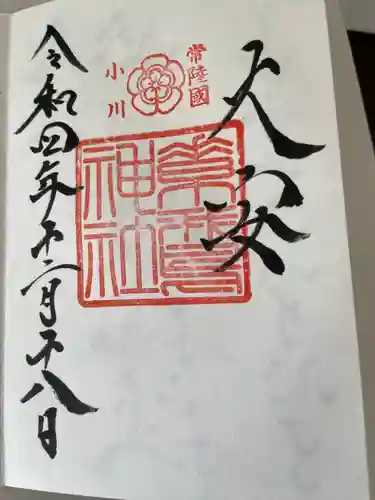 大安
常陸國
小川
素鵞神社
令和四年十二月十八日